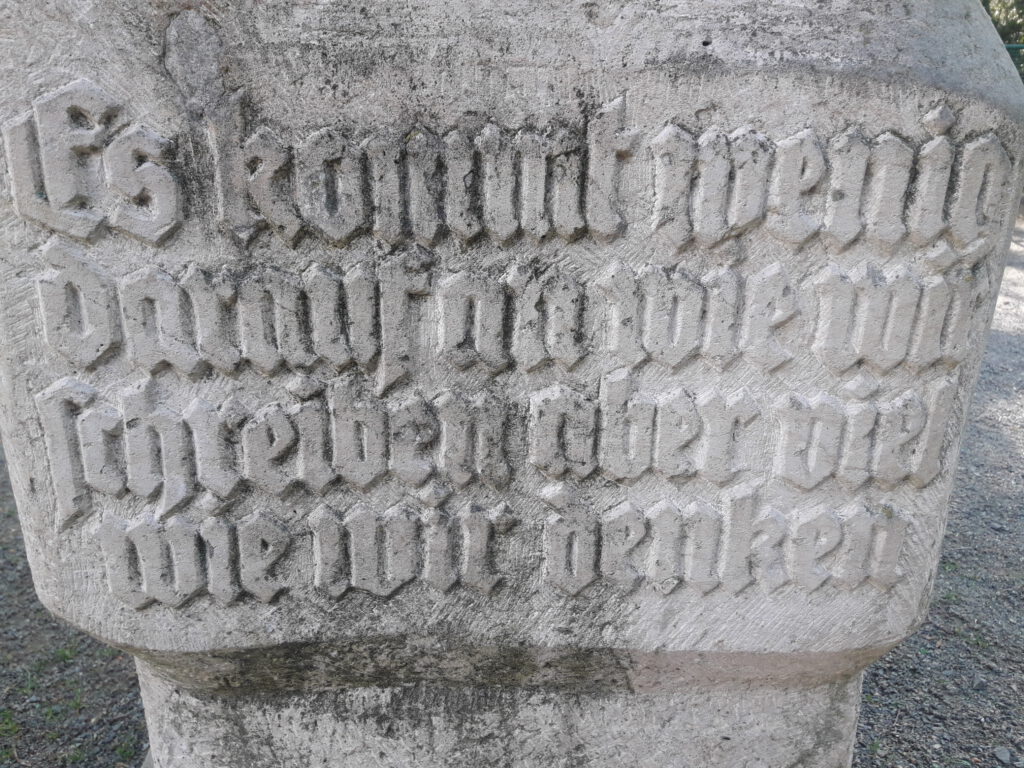 Es kommt wenig
darauf an wie wir
schreiben aber viel
wie wir denken